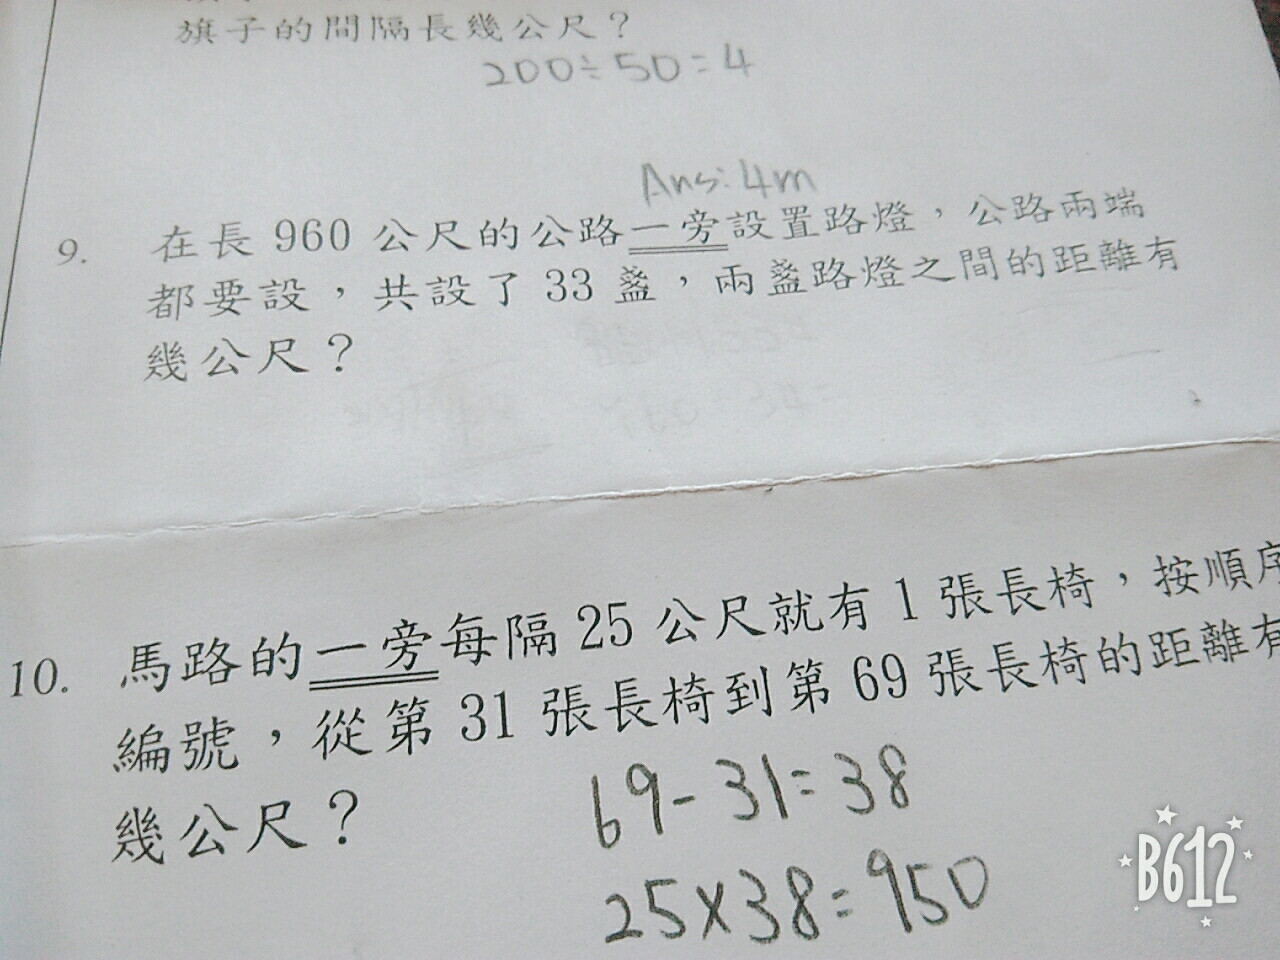 旗子的間隔長幾公尺？
200÷50=4
Ans: 4m
9. 在長 960 公尺的公路一旁設置路燈，公路兩端
都要設，共設了 33 盞，兩盞路燈之間的距離有
幾公尺？
10. 馬路的一旁每隔 25 公尺就有 1 張長椅，按順序
編號，從第 31 張長椅到第 69 張長椅的距離有
幾公尺？
69-31=38
25×38=950
B612